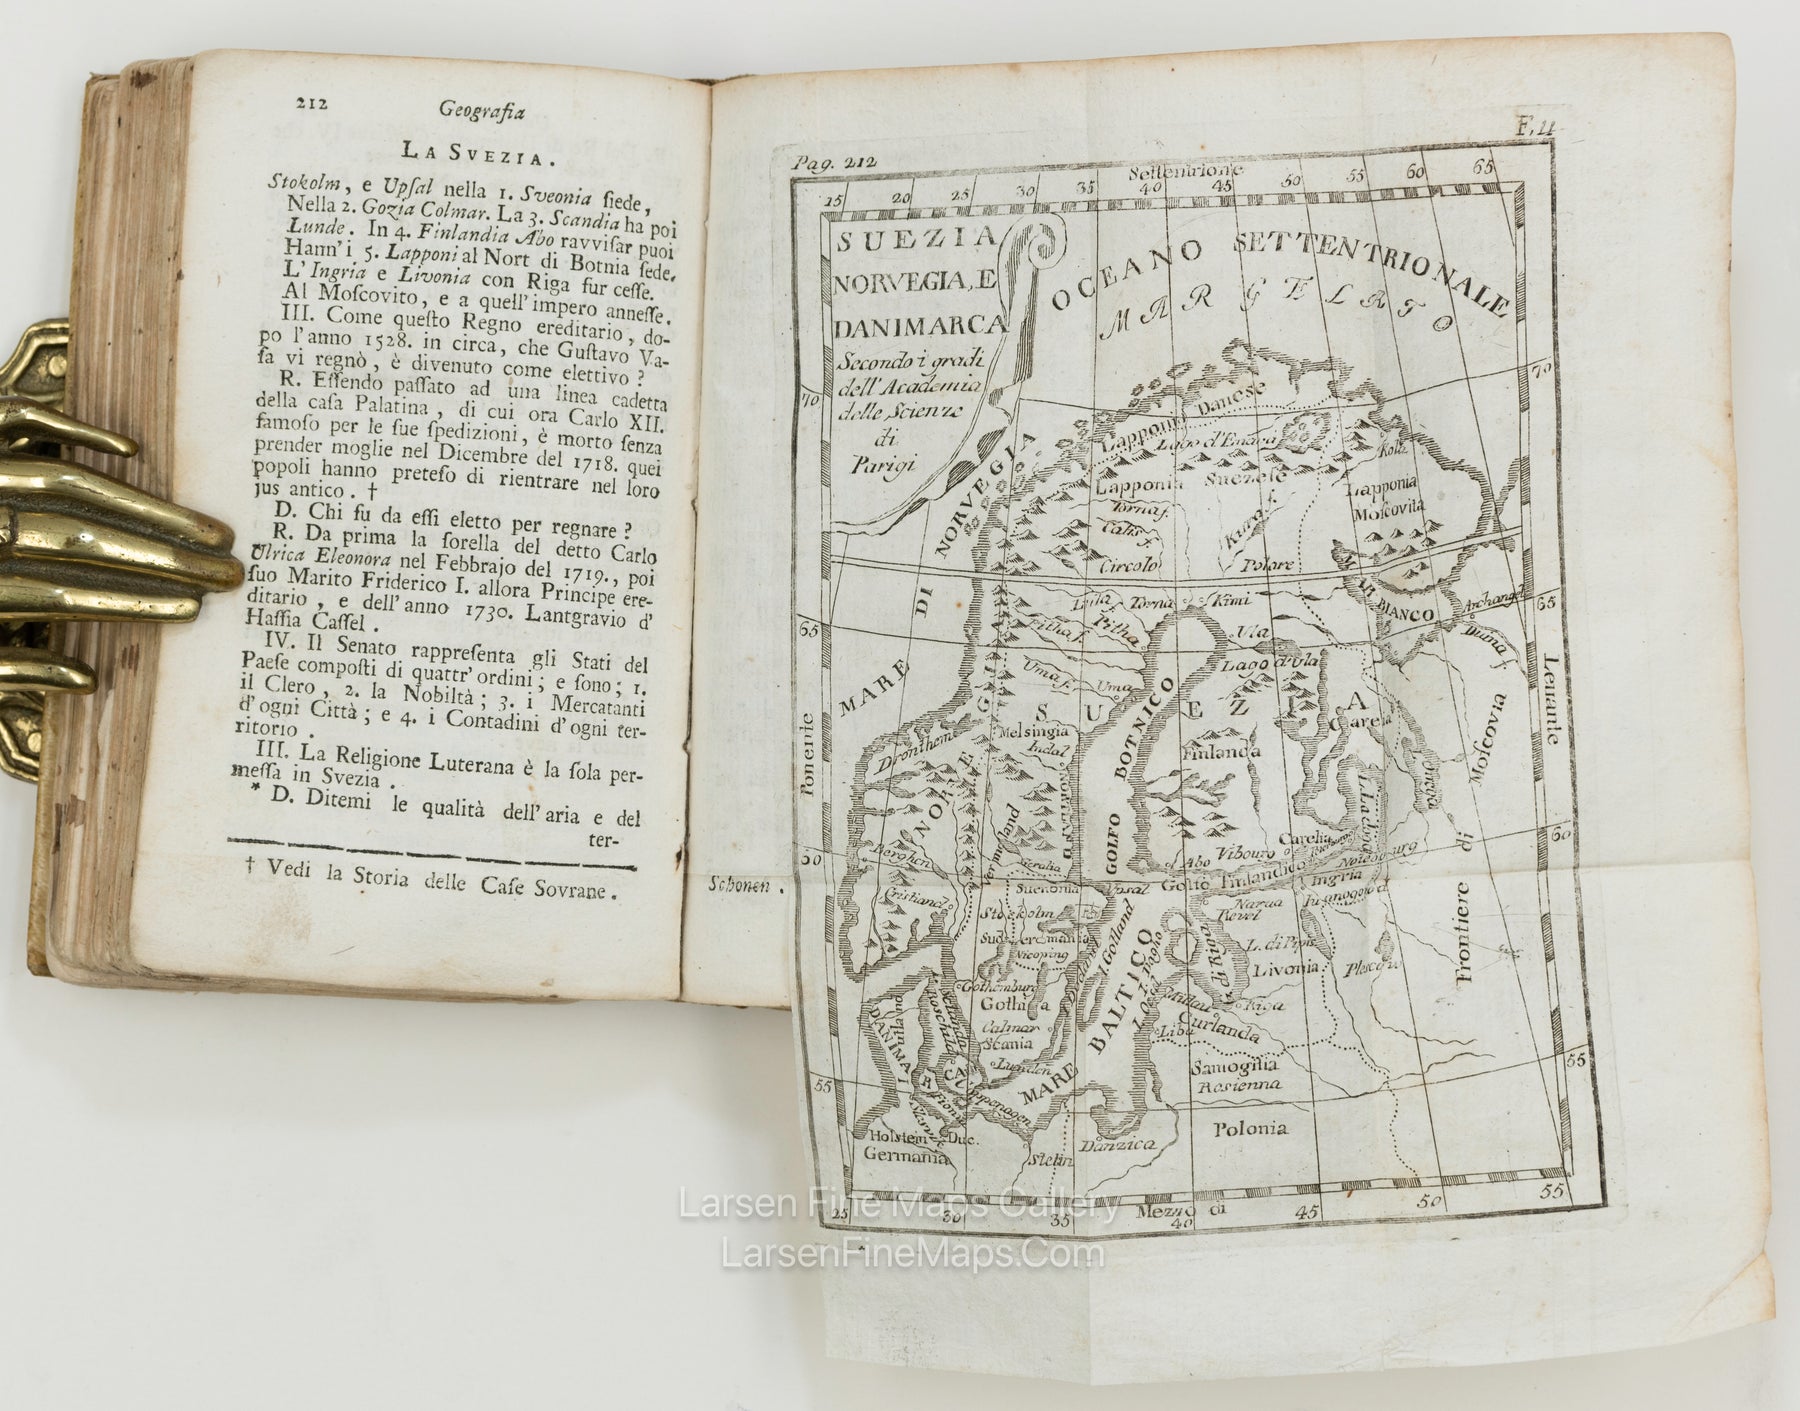 212 Geografia
LA SVEZIA.
Stokolm, e Upſal nella 1. Sveonia ſiede,
Nella 2. Gozia Colmar. La 3. Scandia ha poi
Lunde. In 4. Finlandia Abo ravviſar puoi
Hann' i 5. Lapponi al Nort di Botnia ſede.
L'Ingria e Livonia con Riga fur ceſſe.
Al Moſcovito, e a quell'impero anneſſe.
III. Come queſto Regno ereditario, do-
po l'anno 1528. in circa, che Guſtavo Va-
ſa vi regnò, è divenuto come elettivo?
R. Eſſendo paſſato ad una linea cadetta
della caſa Palatina, di cui ora Carlo XII.
famoſo per le ſue ſpedizioni, è morto ſenza
prender moglie nel Dicembre del 1718. quei
popoli hanno preteſo di rientrare nel loro
jus antico. †
D. Chi fu da eſſi eletto per regnare?
R. Da prima la ſorella del detto Carlo
Ulrica Eleonora nel Febbrajo del 1719., poi
ſuo Marito Friderico I. allora Principe ere-
ditario, e dell'anno 1730. Lantgravio d'
Haſſia Caſſel.
IV. Il Senato rappreſenta gli Stati del
Paeſe compoſti di quattr'ordini; e ſono; 1.
il Clero, 2. la Nobiltà; 3. i Mercatanti
d'ogni Città; e 4. i Contadini d'ogni ter-
ritorio.
III. La Religione Luterana è la ſola per-
meſſa in Svezia.
* D. Ditemi le qualità dell'aria e del
ter-
† Vedi la Storia delle Caſe Sovrane.
Schonen.
Pag. 212
F. 11
Settentrione
15 20 25 30 35 40 45 50 55 60 65
SUEZIA
NORVEGIA, E
DANIMARCA
Secondo i gradi
dell'Academia
delle Scienze
di
Parigi
OCEANO SETTENTRIONALE
MAR GELATO
70
70
Lapponia Danese
Lago d'Enara
Kola
Lapponia Suezese
Lapponia
Moſcovita
Torna f.
Calis f.
Kimi f.
Circolo Polare
MARE DI NORVEGIA
MAR BIANCO
Archangel
65
65
Lula Torna Kimi
Pitha f. Pitha
Ula
Duina f.
Lago d'Ula
Uma f. Uma
SUEZIA
Carela
NORVEGIA
Melsingia
Indal
Dronthem
Finlanda
GOLFO BOTNICO
Moſcovia
Levante
Ponente
Onega
L. Ladoga
Vermeland
Norlland
60
60
Berghen
Carelia
Abo Viburo
Noteburg
Suenonia
Upsal
Golfo Finlandico
Ingria
Cristiand
Narua
Revel
Stockolm
Sudermania
Nicoping
I. Gotland
G. di Riga
L. di Pipis
Livonia
Plescou
Frontiere di
Gothemburg
Gothia
Calmar
Scania
Lunden
BALTICO
MARE
Mittau
Riga
Curlanda
Liba
DANIMARCA
Coppenagen
Samogitia
Rosienna
55
55
Holstein Duc.
Germania
Stetin
Danzica
Polonia
Mezzo di
25 30 35 40 45 50 55
Larsen Fine Maps Gallery
LarsenFineMaps.Com